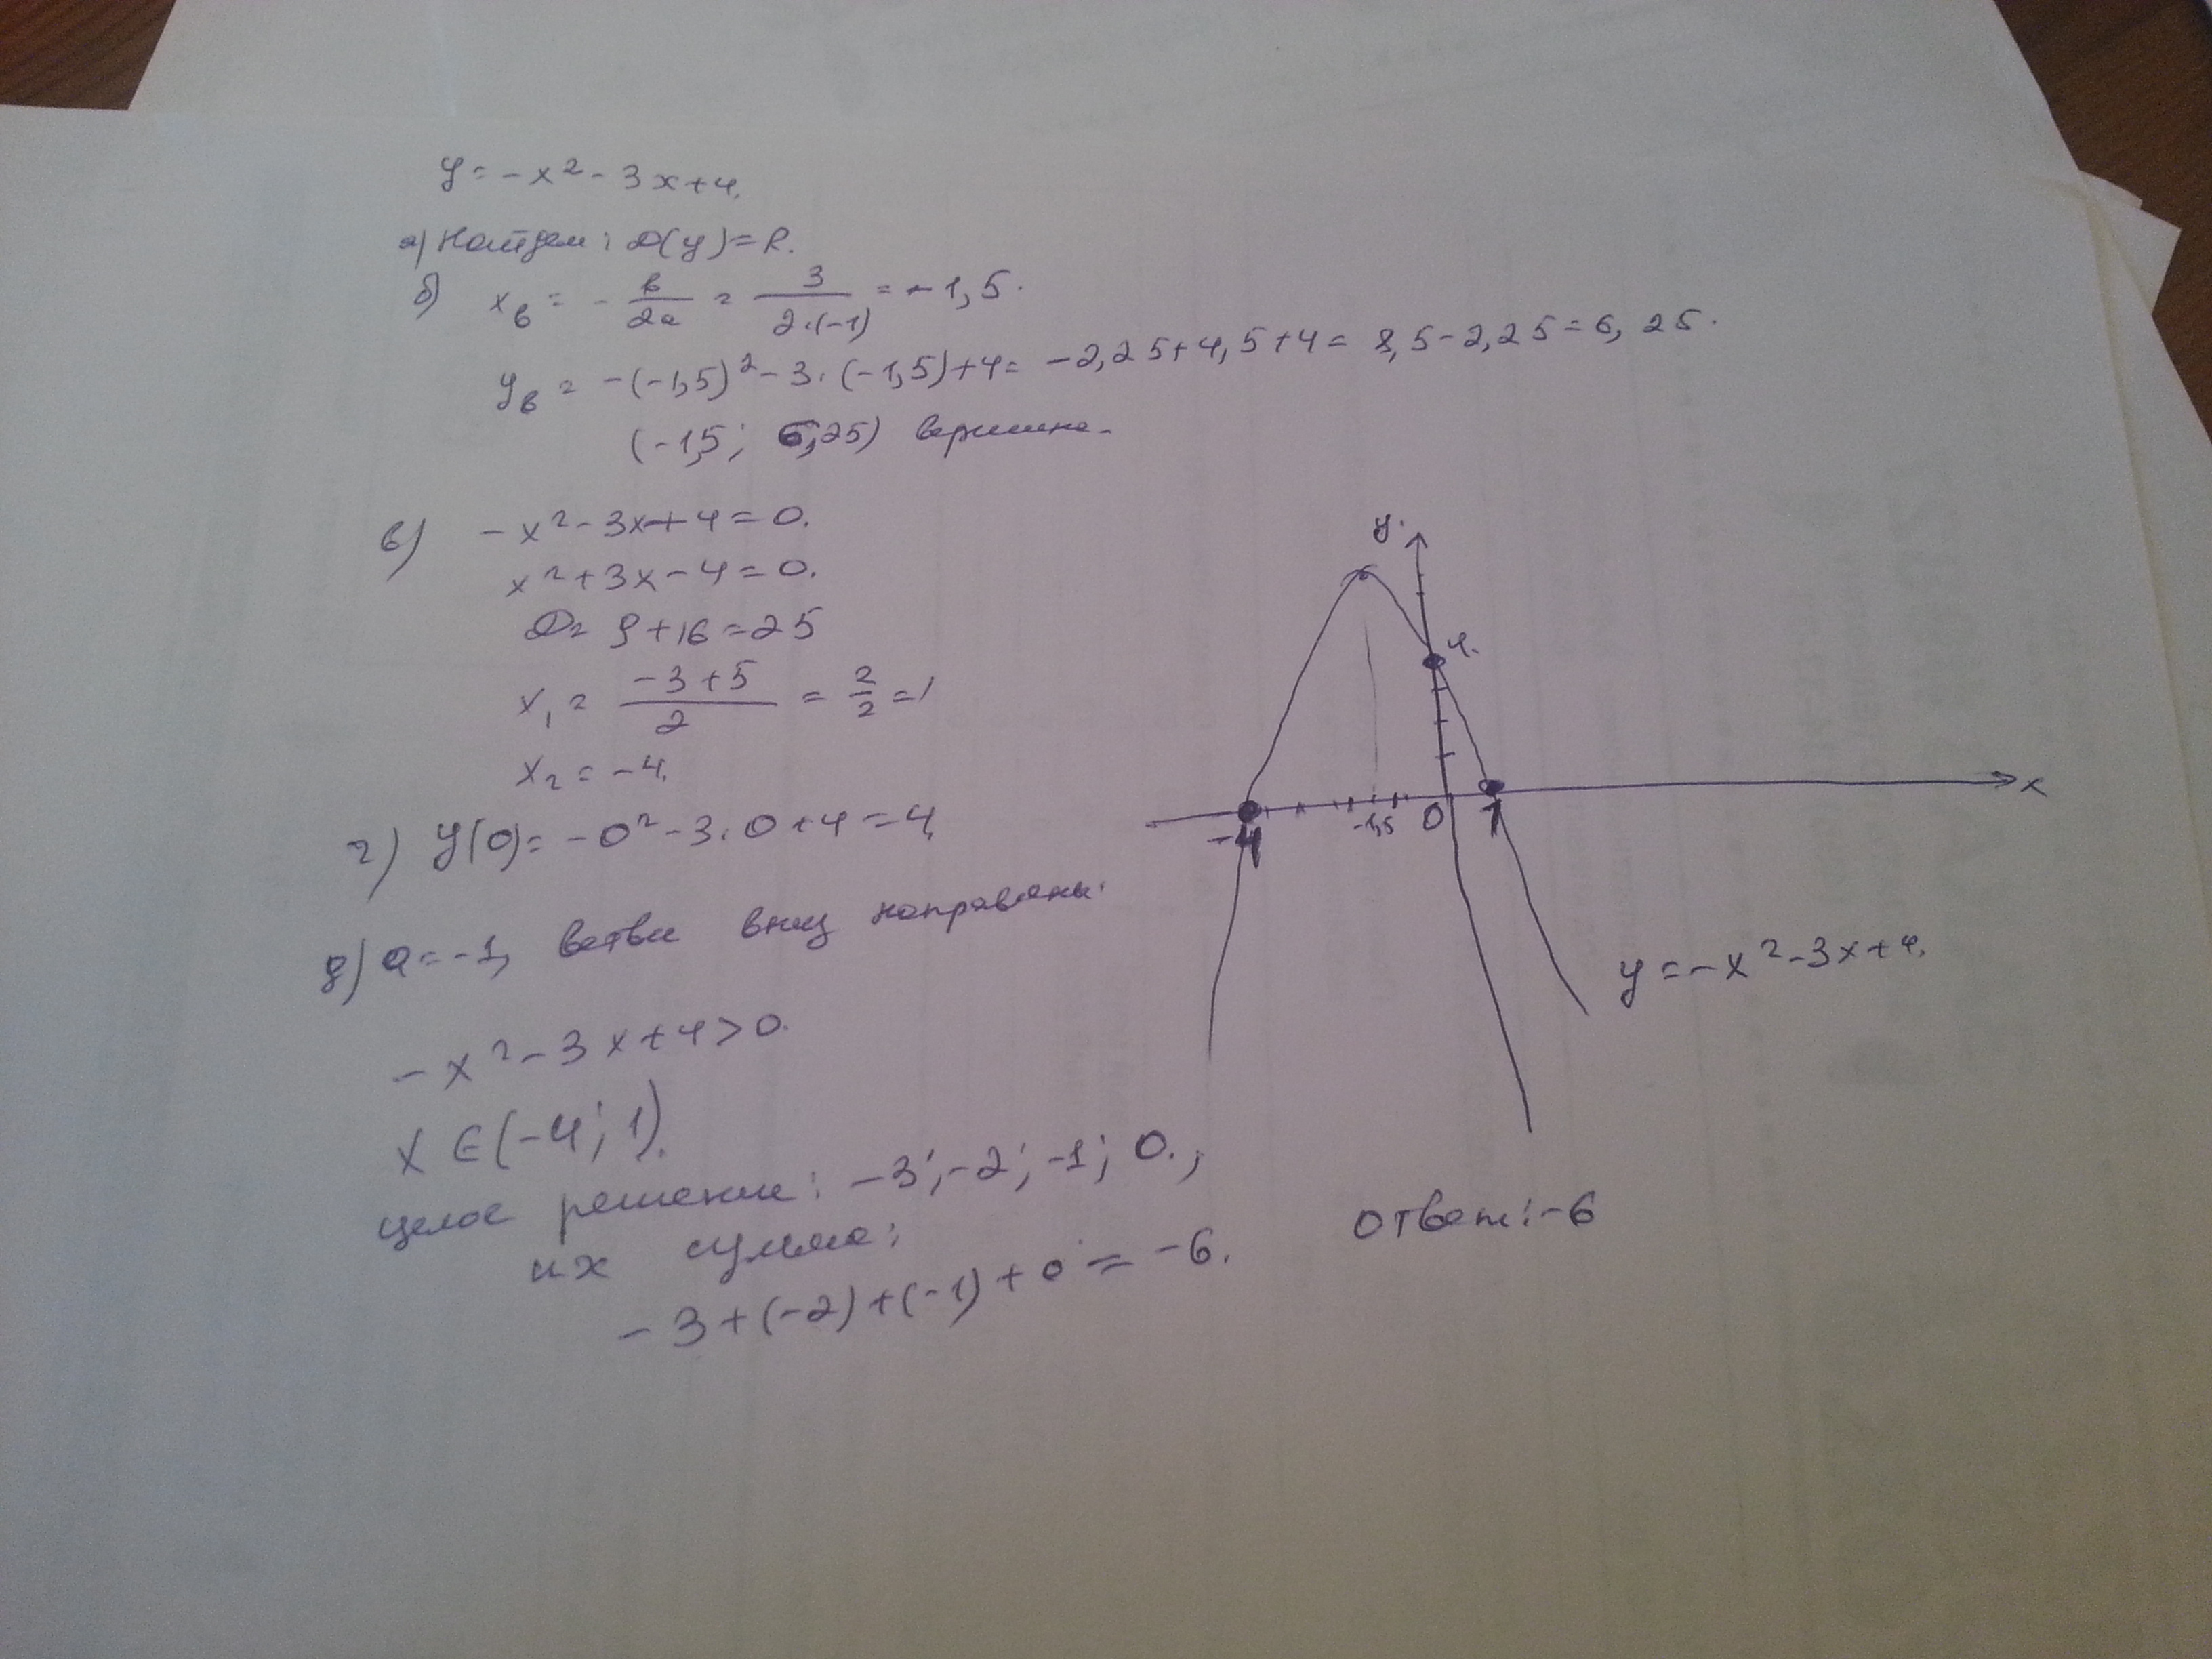 y = -x² - 3x + 4.
а) Найдем: D(y) = R.
б) xв = - в/2a = 3/(2·(-1)) = -1,5.
yв = -(-1,5)² - 3·(-1,5) + 4 = -2,25 + 4,5 + 4 = 8,5 - 2,25 = 6,25.
(-1,5; 6,25) вершина.
в) -x² - 3x + 4 = 0.
x² + 3x - 4 = 0.
D = 9 + 16 = 25
x₁ = (-3 + 5)/2 = 2/2 = 1
x₂ = -4.
г) y(0) = -0² - 3·0 + 4 = 4
д) a = -1, ветви вниз направлены.
-x² - 3x + 4 > 0.
x ∈ (-4; 1).
целое решение: -3; -2; -1; 0.;
их сумма:
-3 + (-2) + (-1) + 0 = -6.
ответ: -6
y.
4.
-4
-1,5
0
1
x
y = -x² - 3x + 4.